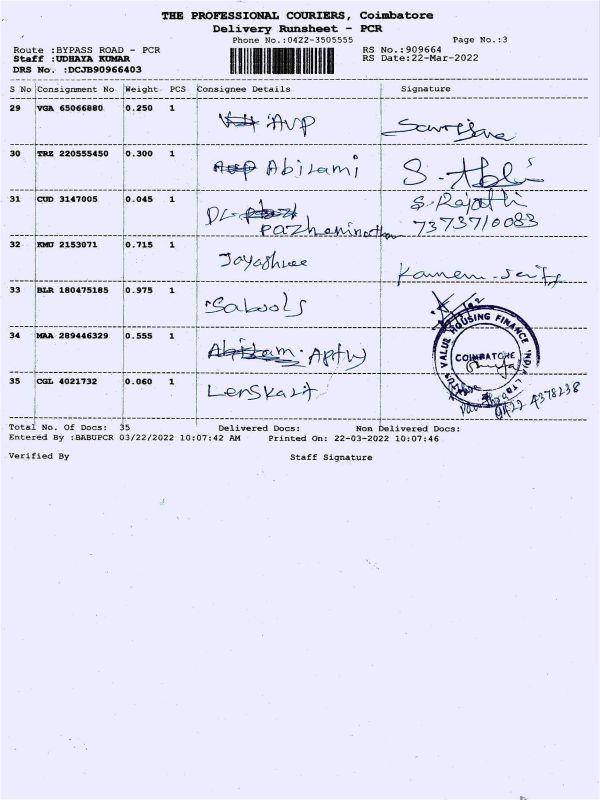 THE PROFESSIONAL COURIERS, Coimbatore
Delivery Runsheet - PCR
Phone No.:0422-3505555
Page No.:3
Route :BYPASS ROAD - PCR
RS No.:909664
Staff :UDHAYA KUMAR
RS Date:22-Mar-2022
DRS No. :DCJB90966403
S No Consignment No Weight PCS Consignee Details Signature
29 VGA 65066880 0.250 1 AVP
30 TRZ 220555450 0.300 1 Abirami S.
31 CUD 3147005 0.045 1 S. Rajathi
Pazhaninathan 7373710083
32 KMU 2153071 0.715 1 Jayashree
33 BLR 180475185 0.975 1 Sabools
34 MAA 289446329 0.555 1 Apty
VALUE HOUSING FINANCE INDIA LTD
COIMBATORE
35 CGL 4021732 0.060 1 Lenskart
0422 4378238
Total No. Of Docs: 35 Delivered Docs: Non Delivered Docs:
Entered By :BABUPCR 03/22/2022 10:07:42 AM Printed On: 22-03-2022 10:07:46
Verified By Staff Signature